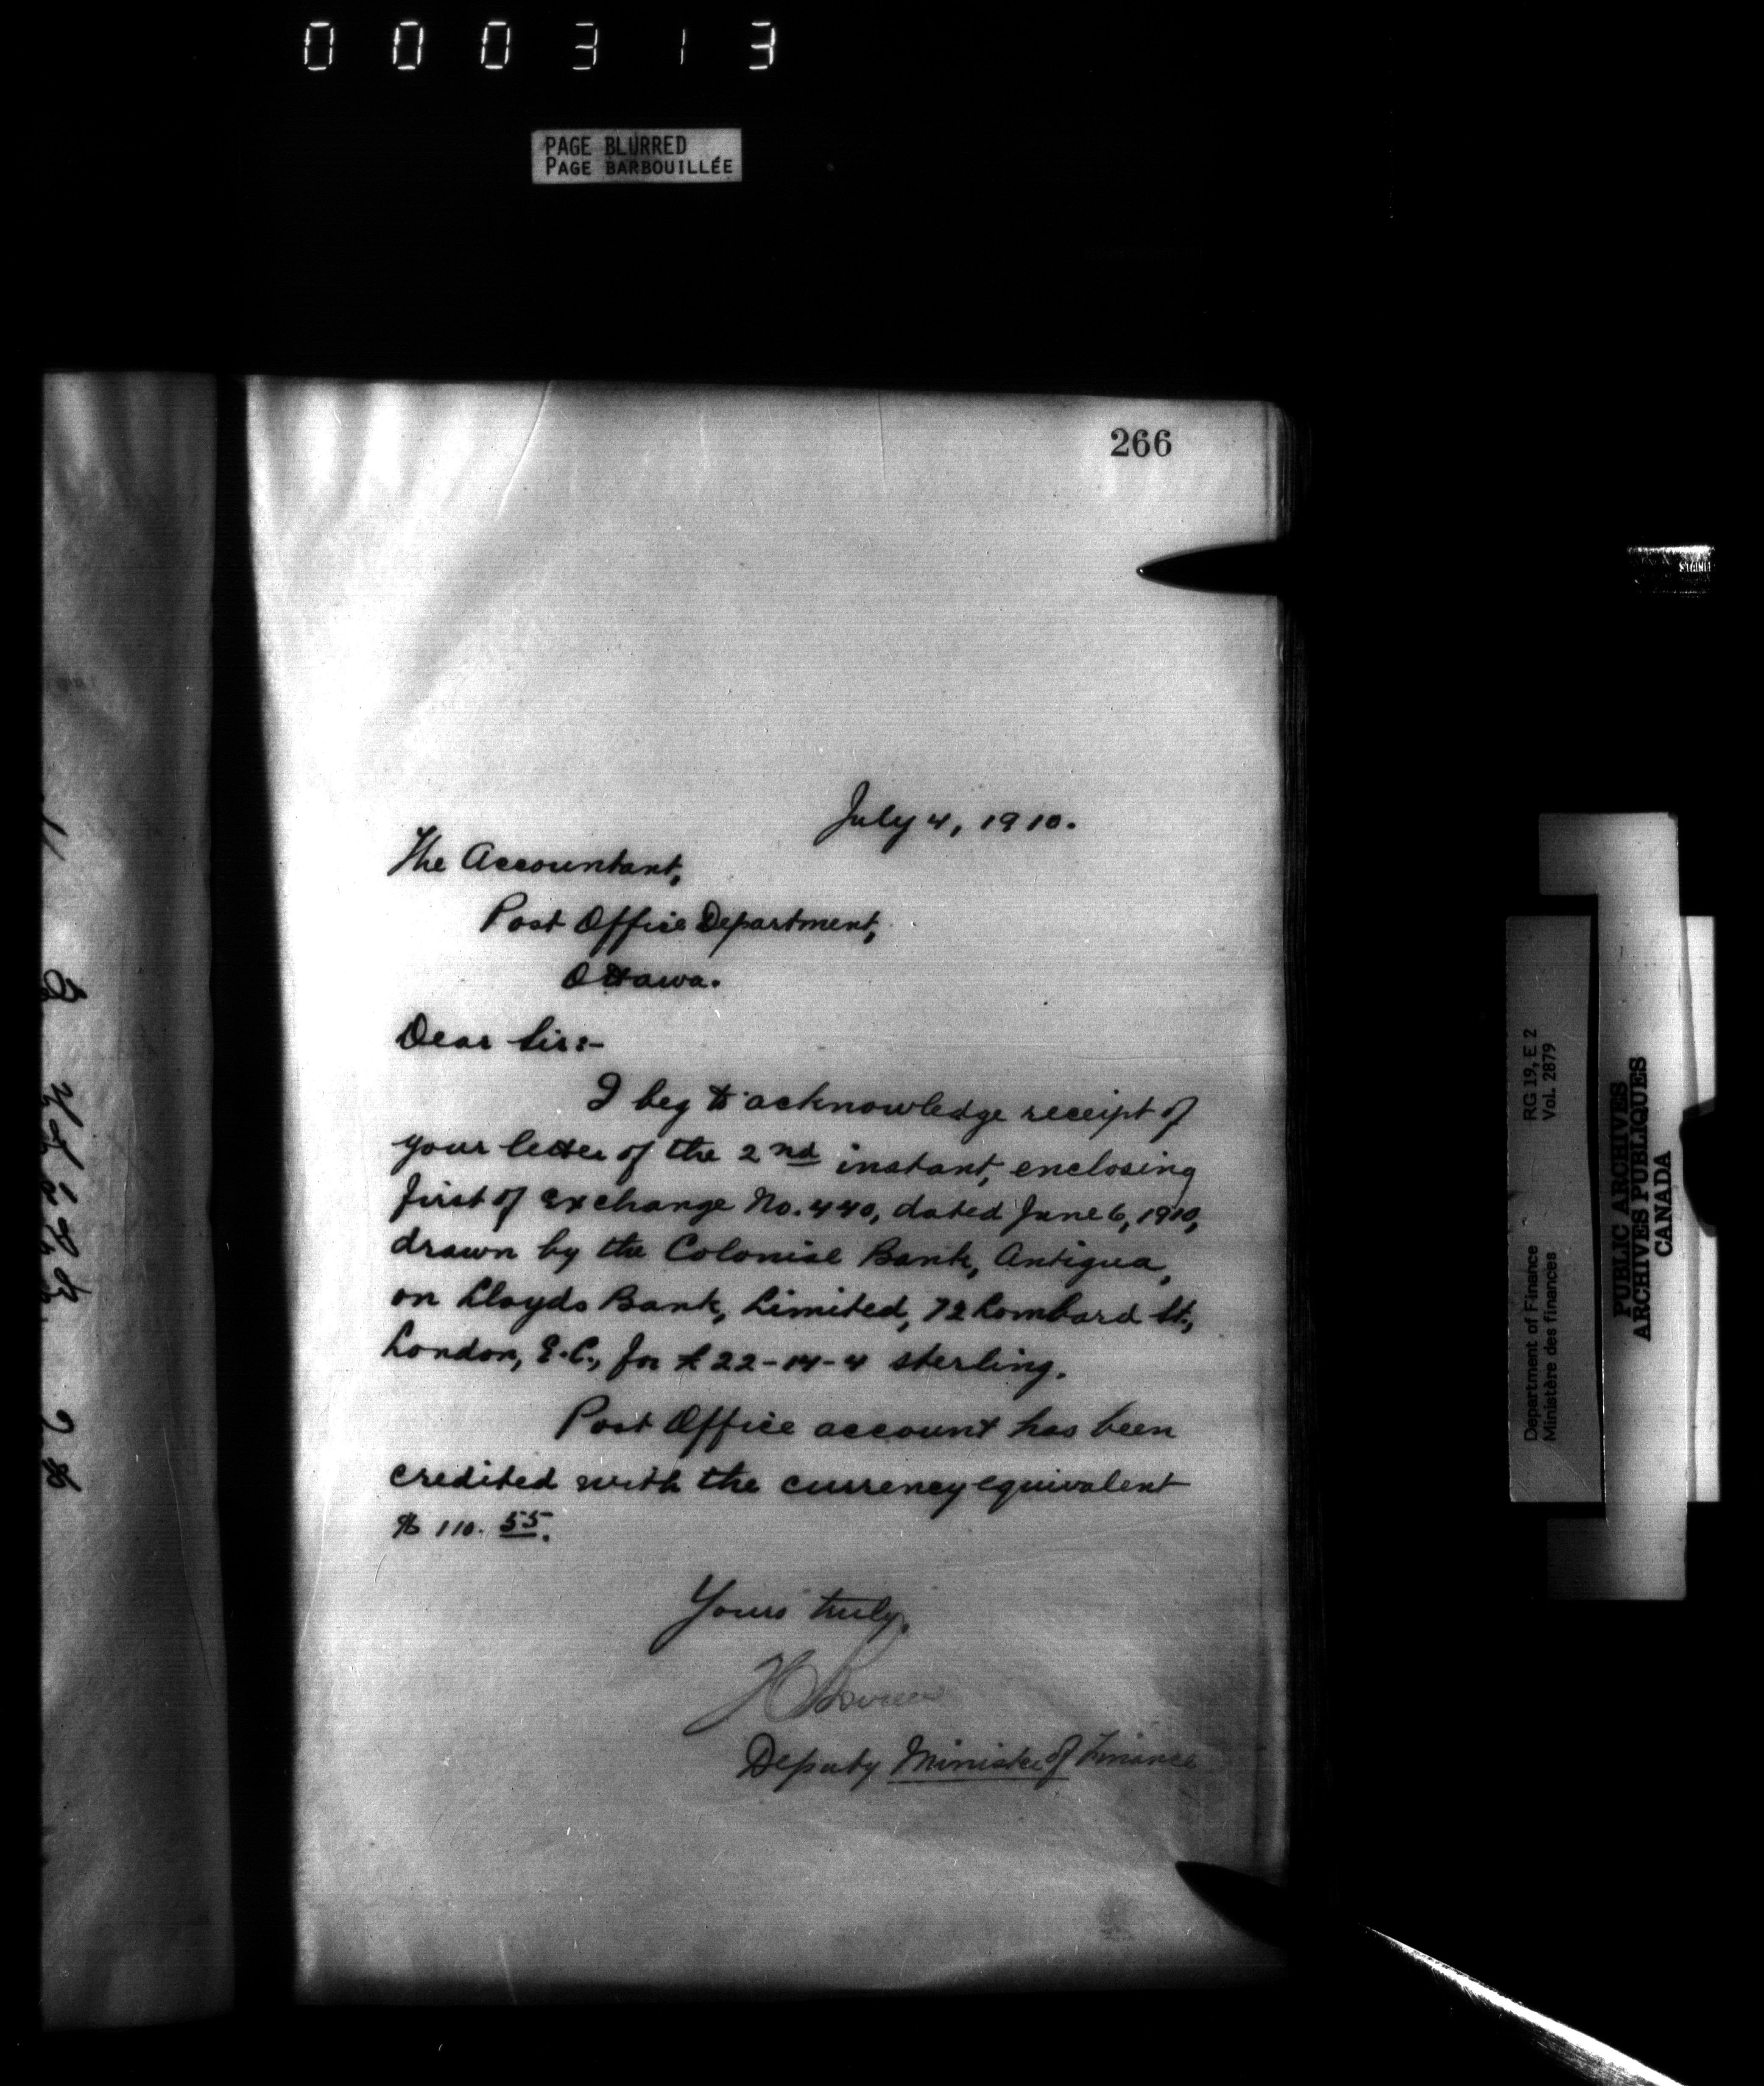 000313
PAGE BLURRED
PAGE BARBOUILLÉE
266
July 4, 1910.
The Accountant,
Post Office Department,
Ottawa.
Dear Sir:-
I beg to acknowledge receipt of
your letter of the 2nd instant, enclosing
first of Exchange No. 440, dated June 6, 1910,
drawn by the Colonial Bank, Antigua,
on Lloyds Bank, Limited, 72 Lombard St.,
London, E.C., for £22-14-4 sterling.
Post Office account has been
credited with the currency equivalent
$110.55.
Yours truly,
Deputy Minister of Finance
Department of Finance RG 19, E 2
Ministère des finances Vol. 2879
PUBLIC ARCHIVES
ARCHIVES PUBLIQUES
CANADA